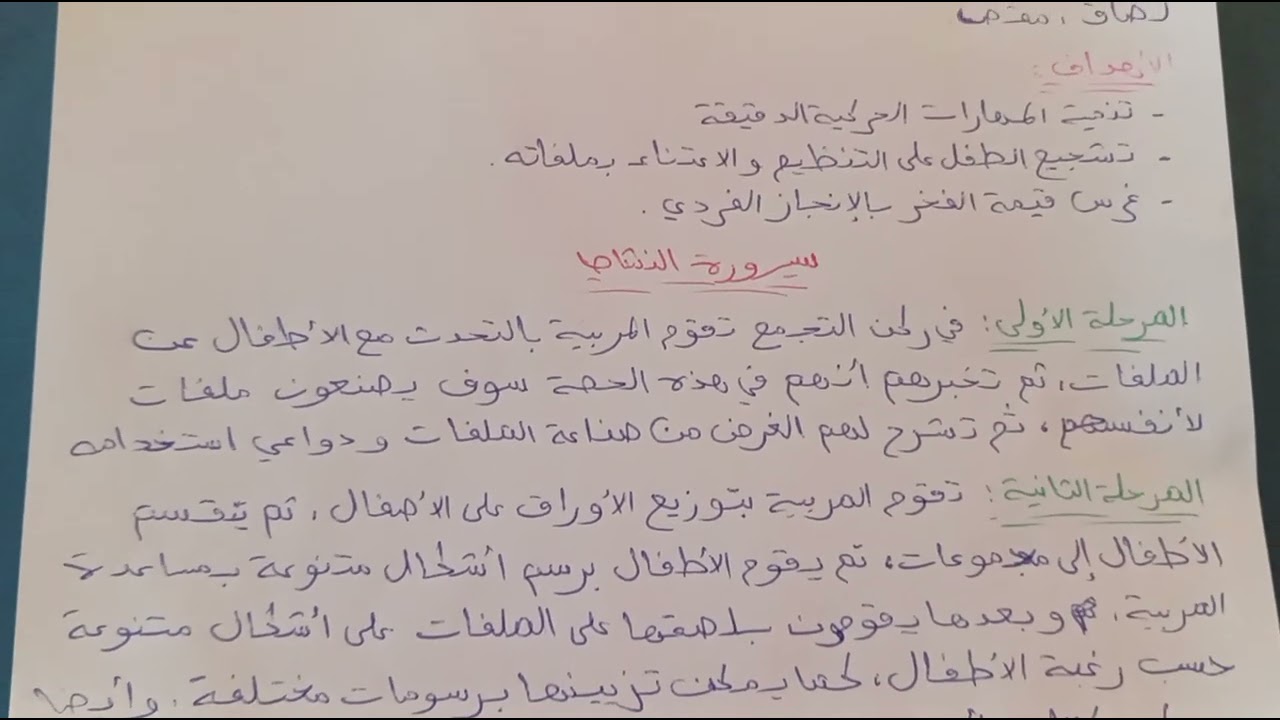 لصاق، مقص
الأهداف:
- تنمية المهارات الحركية الدقيقة
- تشجيع الطفل على التنظيم والاعتناء بملفاته.
- غرس قيمة الفخر بالإنجاز الفردي.
سيرورة النشاط
المرحلة الأولى: في ركن التجمع تقوم المربية بالتحدث مع الأطفال عن
الملفات، ثم تخبرهم أنهم في هذه الحصة سوف يصنعون ملفات
لأنفسهم، ثم تشرح لهم الغرض من صناعة الملفات ودواعي استخدامه
المرحلة الثانية: تقوم المربية بتوزيع الأوراق على الأصفال، ثم يتقسم
الأطفال إلى مجموعات، ثم يقوم الأطفال برسم أشكال متنوعة بمساعدة
المربية، وبعدها يقومون بلصقها على الملفات على أشكال متنوعة
حسب رغبة الأطفال، كما يمكن تزيينها برسومات مختلفة. وأيضا